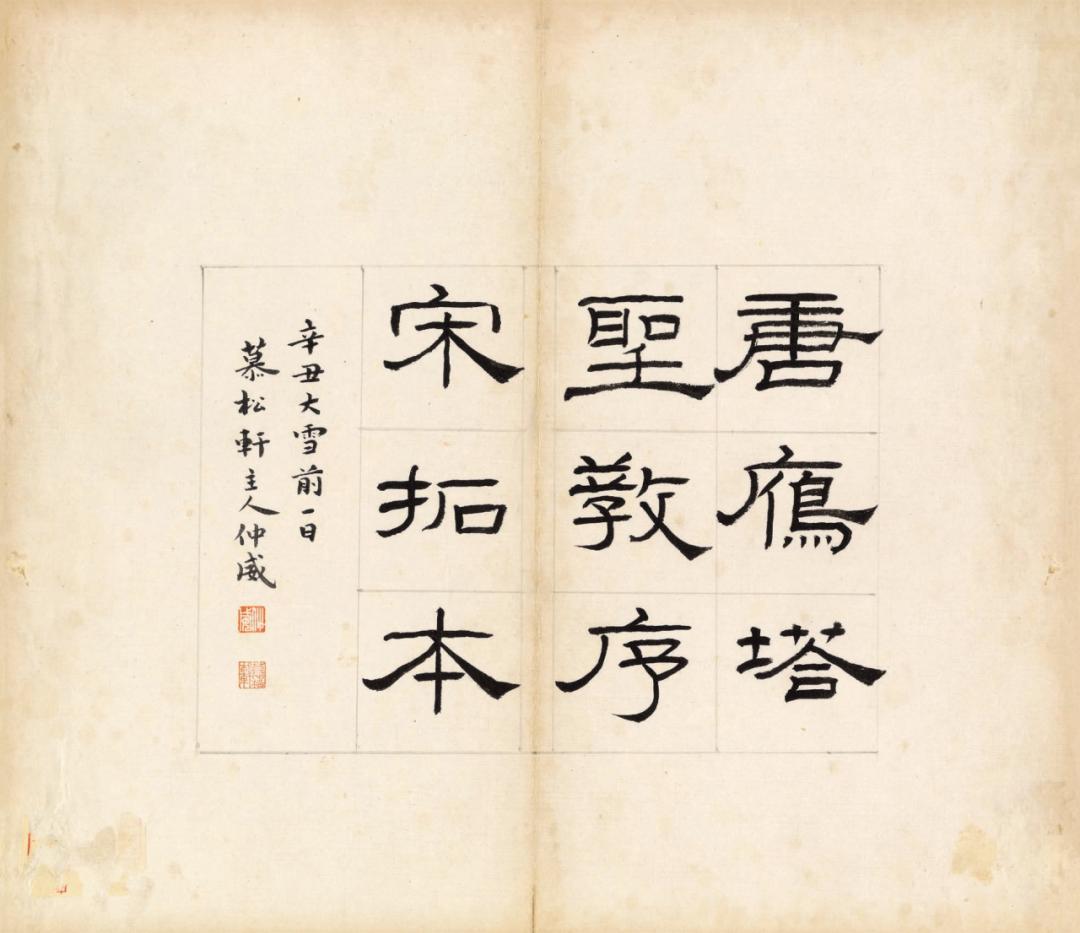 唐鴈塔
聖教序
宋拓本
辛丑大雪前一日
慕松軒主人仲威